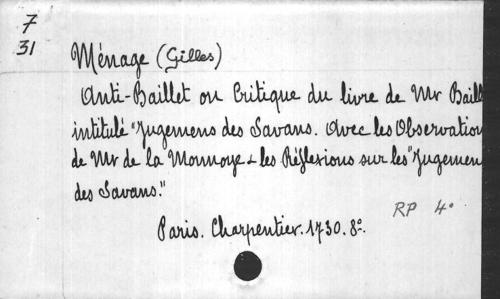 7
31
Ménage (Gilles)
Anti-Baillet ou Critique du livre de Mr Baill
intitulé "Jugemens des Savans. Avec les Observation
de Mr de la Monnoye & les Réflexions sur les "Jugemen
des Savans."
RP 4°
Paris. Charpentier. 1730. 8°.